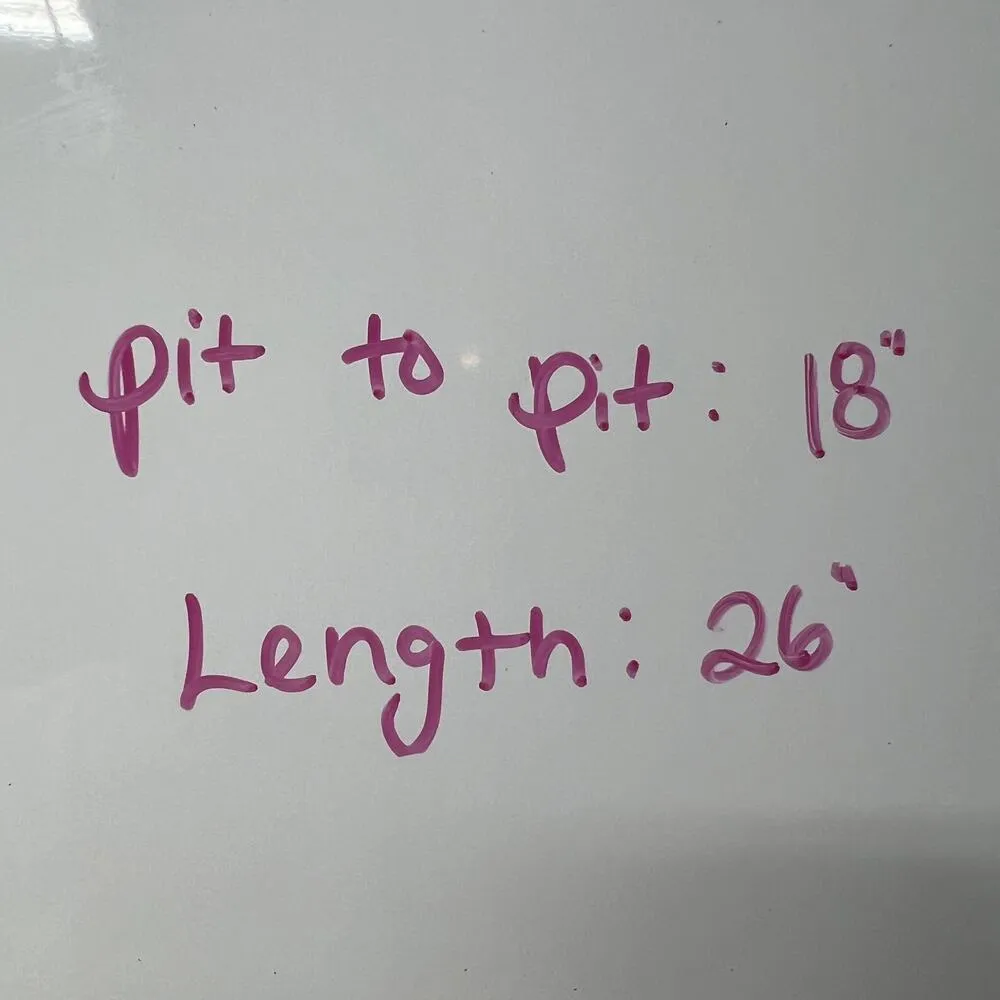 pit to pit: 18"
Length: 26"